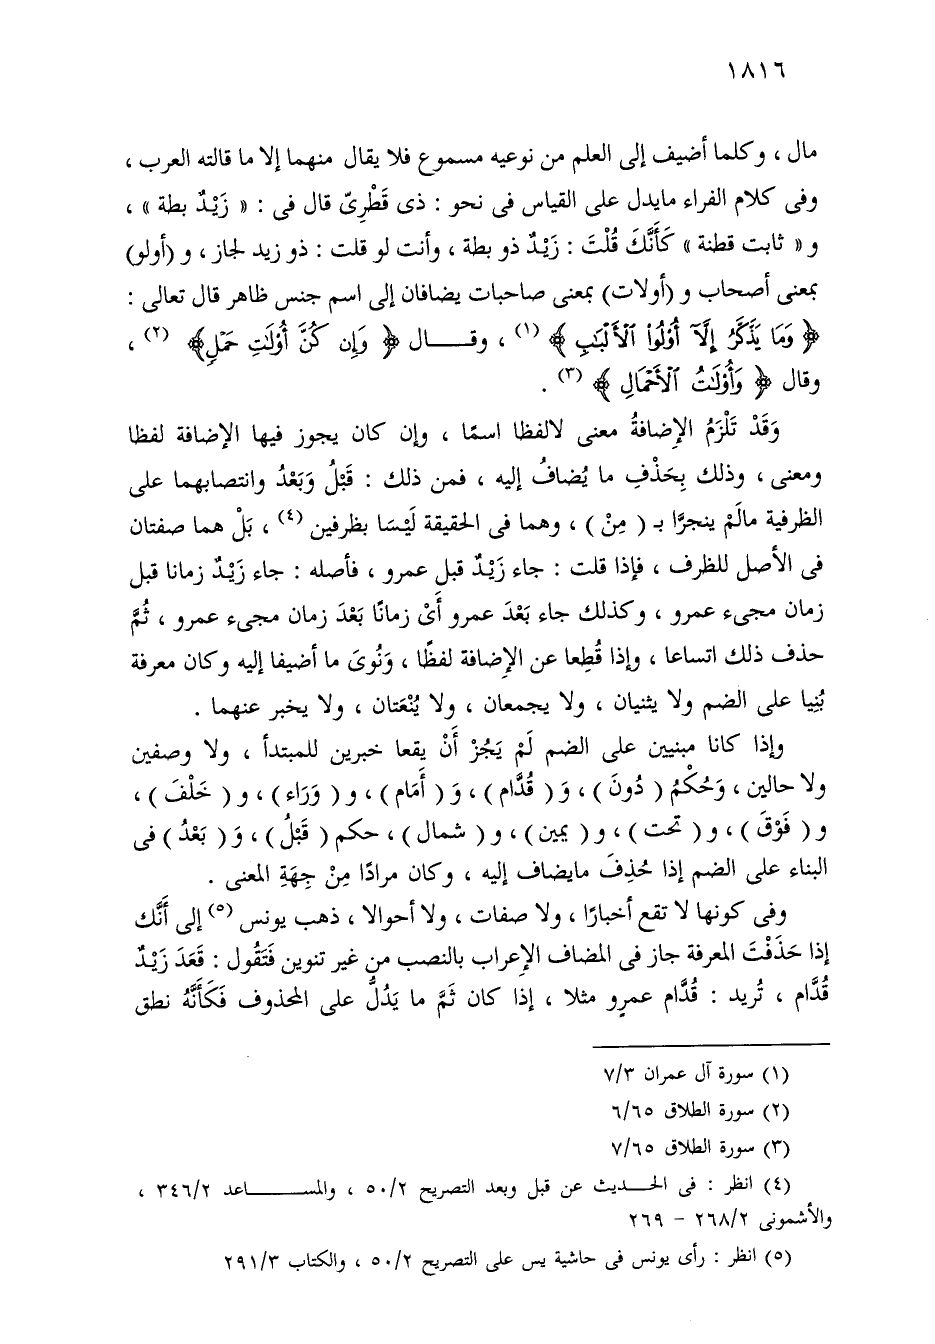 ١٨١٦
مال ، وكلما أضيف إلى العلم من نوعيه مسموع فلا يقال منهما إلا ما قالته العرب ،
وفى كلام الفراء مايدل على القياس فى نحو : ذى قَطْرِىّ قال فى : « زَيْدٌ بطة » ،
و « ثابت قطنة » كَأَنَّكَ قُلْتَ : زَيْدٌ ذو بطة ، وأنت لو قلت : ذو زيد لجاز ، و (أولو)
بمعنى أصحاب و (أولات) بمعنى صاحبات يضافان إلى اسم جنس ظاهر قال تعالى :
﴿ وَمَا يَذَّكَّرُ إِلَّآ أُوْلُواْ ٱلْأَلْبَٰبِ ﴾ (١) ، وقـــــال ﴿ وَإِن كُنَّ أُوْلَٰتِ حَمْلٍ﴾ (٢) ،
وقال ﴿ وَأُوْلَٰتُ ٱلْأَحْمَالِ ﴾ (٣) .
وَقَدْ تَلْزَمُ الإضافةُ معنى لالفظا اسمًا ، وإن كان يجوز فيها الإضافة لفظا
ومعنى ، وذلك بِحَذْفِ ما يُضافُ إليه ، فمن ذلك : قَبْلُ وَبَعْدُ وانتصابهما على
الظرفية مالَمْ ينجرَّا بـ ( مِنْ ) ، وهما فى الحقيقة لَيْسَا بظرفين (٤) ، بَلْ هما صفتان
فى الأصل للظرف ، فإذا قلت : جاء زَيْدٌ قبل عمرو ، فأصله : جاء زَيْدٌ زمانا قبل
زمان مجىء عمرو ، وكذلك جاء بَعْدَ عمرو أَىْ زمانًا بَعْدَ زمان مجىء عمرو ، ثُمَّ
حذف ذلك اتساعا ، وإذا قُطِعا عن الإضافة لفظًا ، وَنُوىَ ما أضيفا إليه وكان معرفة
بُنِيا على الضم ولا يثنيان ، ولا يجمعان ، ولا يُنْعَتان ، ولا يخبر عنهما .
وإذا كانا مبنيين على الضم لَمْ يَجُزْ أَنْ يقعا خبرين للمبتدأ ، ولا وصفين
ولا حالين ، وَحُكْمُ ( دُونَ ) ، وَ ( قُدَّام ) ، وَ ( أَمَام ) ، و ( وَرَاء ) ، و ( خَلْفَ ) ،
و ( فَوْقَ ) ، و ( تحت ) ، و ( يمين ) ، و ( شمال ) ، حكم ( قَبْلُ ) ، وَ ( بَعْدُ ) فى
البناء على الضم إذا حُذِفَ مايضاف إليه ، وكان مرادًا مِنْ جِهَةِ المعنى .
وفى كونها لا تقع أخبارًا ، ولا صفات ، ولا أحوالا ، ذهب يونس (٥) إلى أَنَّك
إذا حَذَفْتَ المعرفة جاز فى المضاف الإعراب بالنصب من غير تنوين فَتَقُول : قَعَدَ زَيْدٌ
قُدَّام ، تُريد : قُدَّام عمرٍو مثلا ، إذا كان ثَمَّ ما يَدُلُّ على المحذوف فَكَأَنَّهُ نطق
(١) سورة آل عمران ٧/٣
(٢) سورة الطلاق ٦/٦٥
(٣) سورة الطلاق ٧/٦٥
(٤) انظر : فى الحـــديث عن قبل وبعد التصريح ٥٠/٢ ، والمســـــــاعد ٣٤٦/٢ ،
والأشمونى ٢٦٨/٢ – ٢٦٩
(٥) انظر : رأى يونس فى حاشية يس على التصريح ٥٠/٢ ، والكتاب ٢٩١/٣